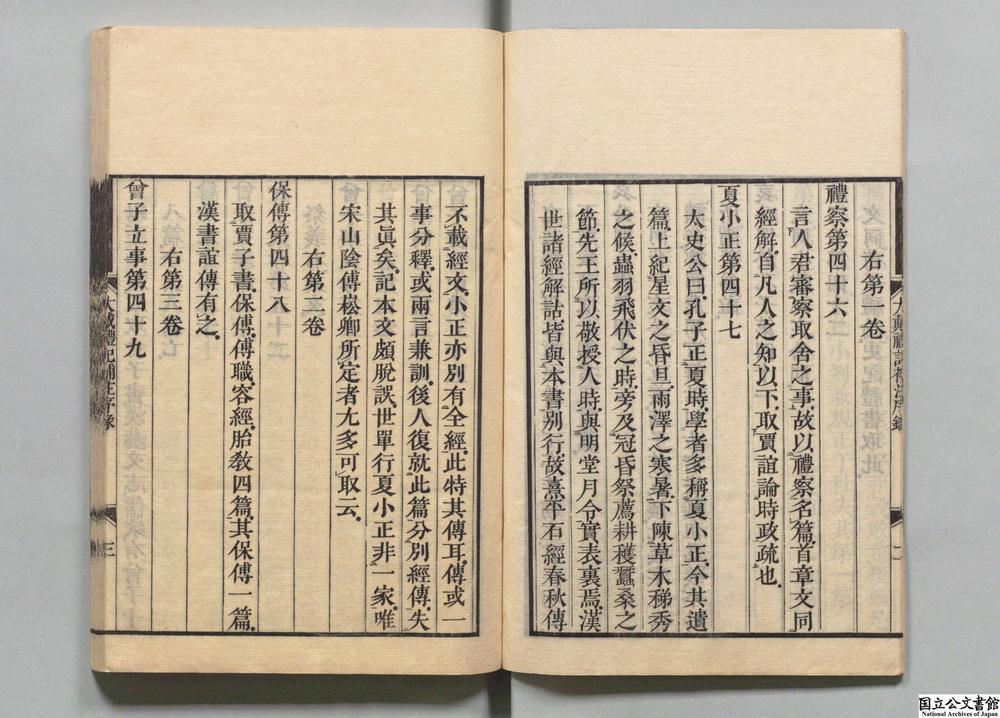 右第一卷
禮察第四十六
言人君審察取舍之事故以禮察名篇首章文同
經解自凡人之知以下取賈誼論時政疏也
夏小正第四十七
太史公曰孔子正夏時學者多稱夏小正今其遺
篇上紀星文之昏旦雨澤之寒暑下陳草木稊秀
之候蟲羽飛伏之時旁及冠昏祭薦耕穫蠶桑之
節先王所以敬授人時與明堂月令實表裏焉漢
世諸經解詁皆與本書別行故熹平石經春秋傳
不載經文小正亦別有全經此特其傳耳傳或一
事分釋或兩言兼訓後人復就此篇分別經傳失
其眞矣記本文頗脫誤世單行夏小正非一家唯
宋山陰傅崧卿所定者尤多可取云
右第二卷
保傅第四十八
取賈子書保傅傅職容經胎敎四篇其保傅一篇
漢書誼傳有之
右第三卷
曾子立事第四十九
大戴禮記補注序錄
三
国立公文書館
National Archives of Japan